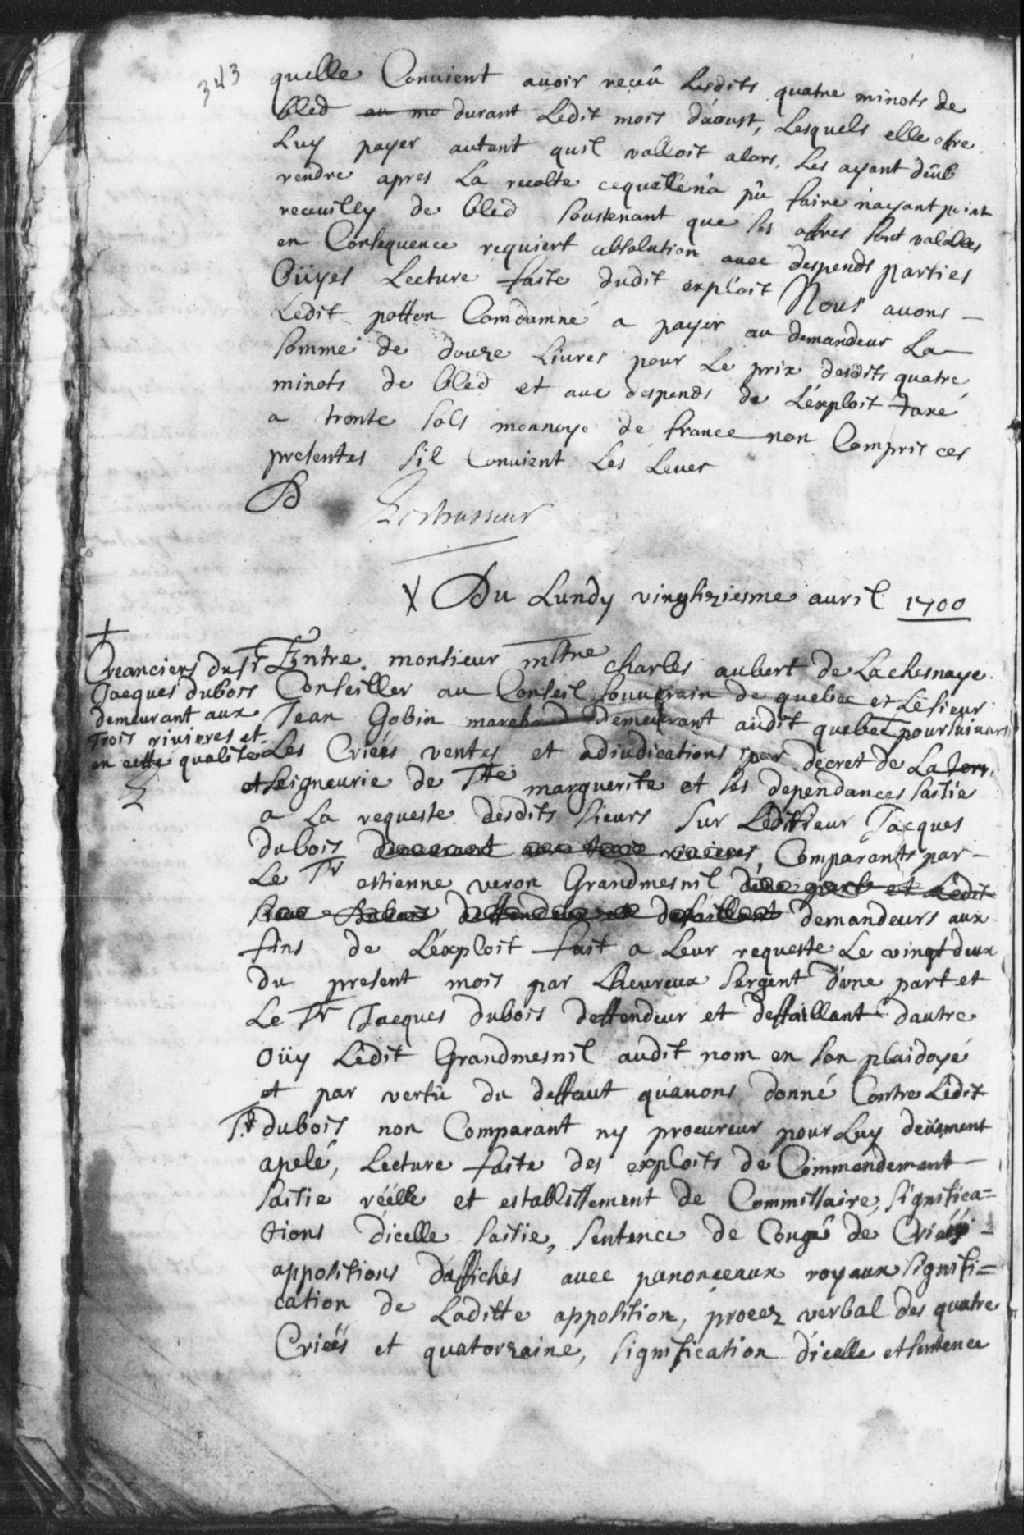 343
quelle Convient avoir receu lesdits quatre minots de
bled au mo durant Ledit mois d'aoust, Lesquels elle ofre
Luy payer autant quil valloit alors, Les ayant deub
rendre apres La recolte cequelle na pû faire n'ayant point
recueilly de bled soustenant que ses offres sont valables
en Consequence requiert absolution avec despends parties
Oüyes Lecture faite dudit exploit Nous avons
Ledit potton Comdamné a payer au demandeur La
somme de douze Livres pour Le prix desdits quatre
minots de bled et aux despends de L'exploit taxé
a trente sols monnoye de france non Compris ces
presentes sil Convient Les Lever
Du Lundy vingtsiziesme avril 1700
Creanciers du Sr
Jacques dubois
demeurant aux
Trois rivieres et
en cette qualité
Entre monsieur mtre charles aubert de Lachesnaye
Conseiller au Conseil souverain de quebec et Le sieur
Jean Gobin marchand demeurant audit quebec poursuivans
Les Criées ventes et adiudications par decret de La terre
et seigneurie de Ste marguerite et ses dependances saisie
a La requeste desdits sieurs sur Ledit sieur Jacques
dubois demeurant aux trois rivieres, Comparants par
Le Sr estienne veron Grandmesnil d'une part et Ledit
sieur dubois deffendeur et defaillant demandeurs aux
fins de L'exploit fait a Leur requeste Le vingt deux
du present mois par Lheureux sergent d'une part et
Le Sr Jacques dubois deffendeur et deffaillant dautre
Oüy Ledit Grandmesnil audit nom en son plaidoyé
et par vertu du deffaut quavons donné Contre Ledit
Sr dubois non Comparant ny procureur pour Luy deüement
apelé, Lecture faite des exploits de Commandement
saisie réélle et establissement de Commissaire, significa=
tions dicelle saisie, sentence de Congé de Criées
appositions d'affiches avec panonceaux royaux signifi=
cation de Laditte apposition, procez verbal des quatre
Criées et quatorzaine, signification d'icelle et sentence